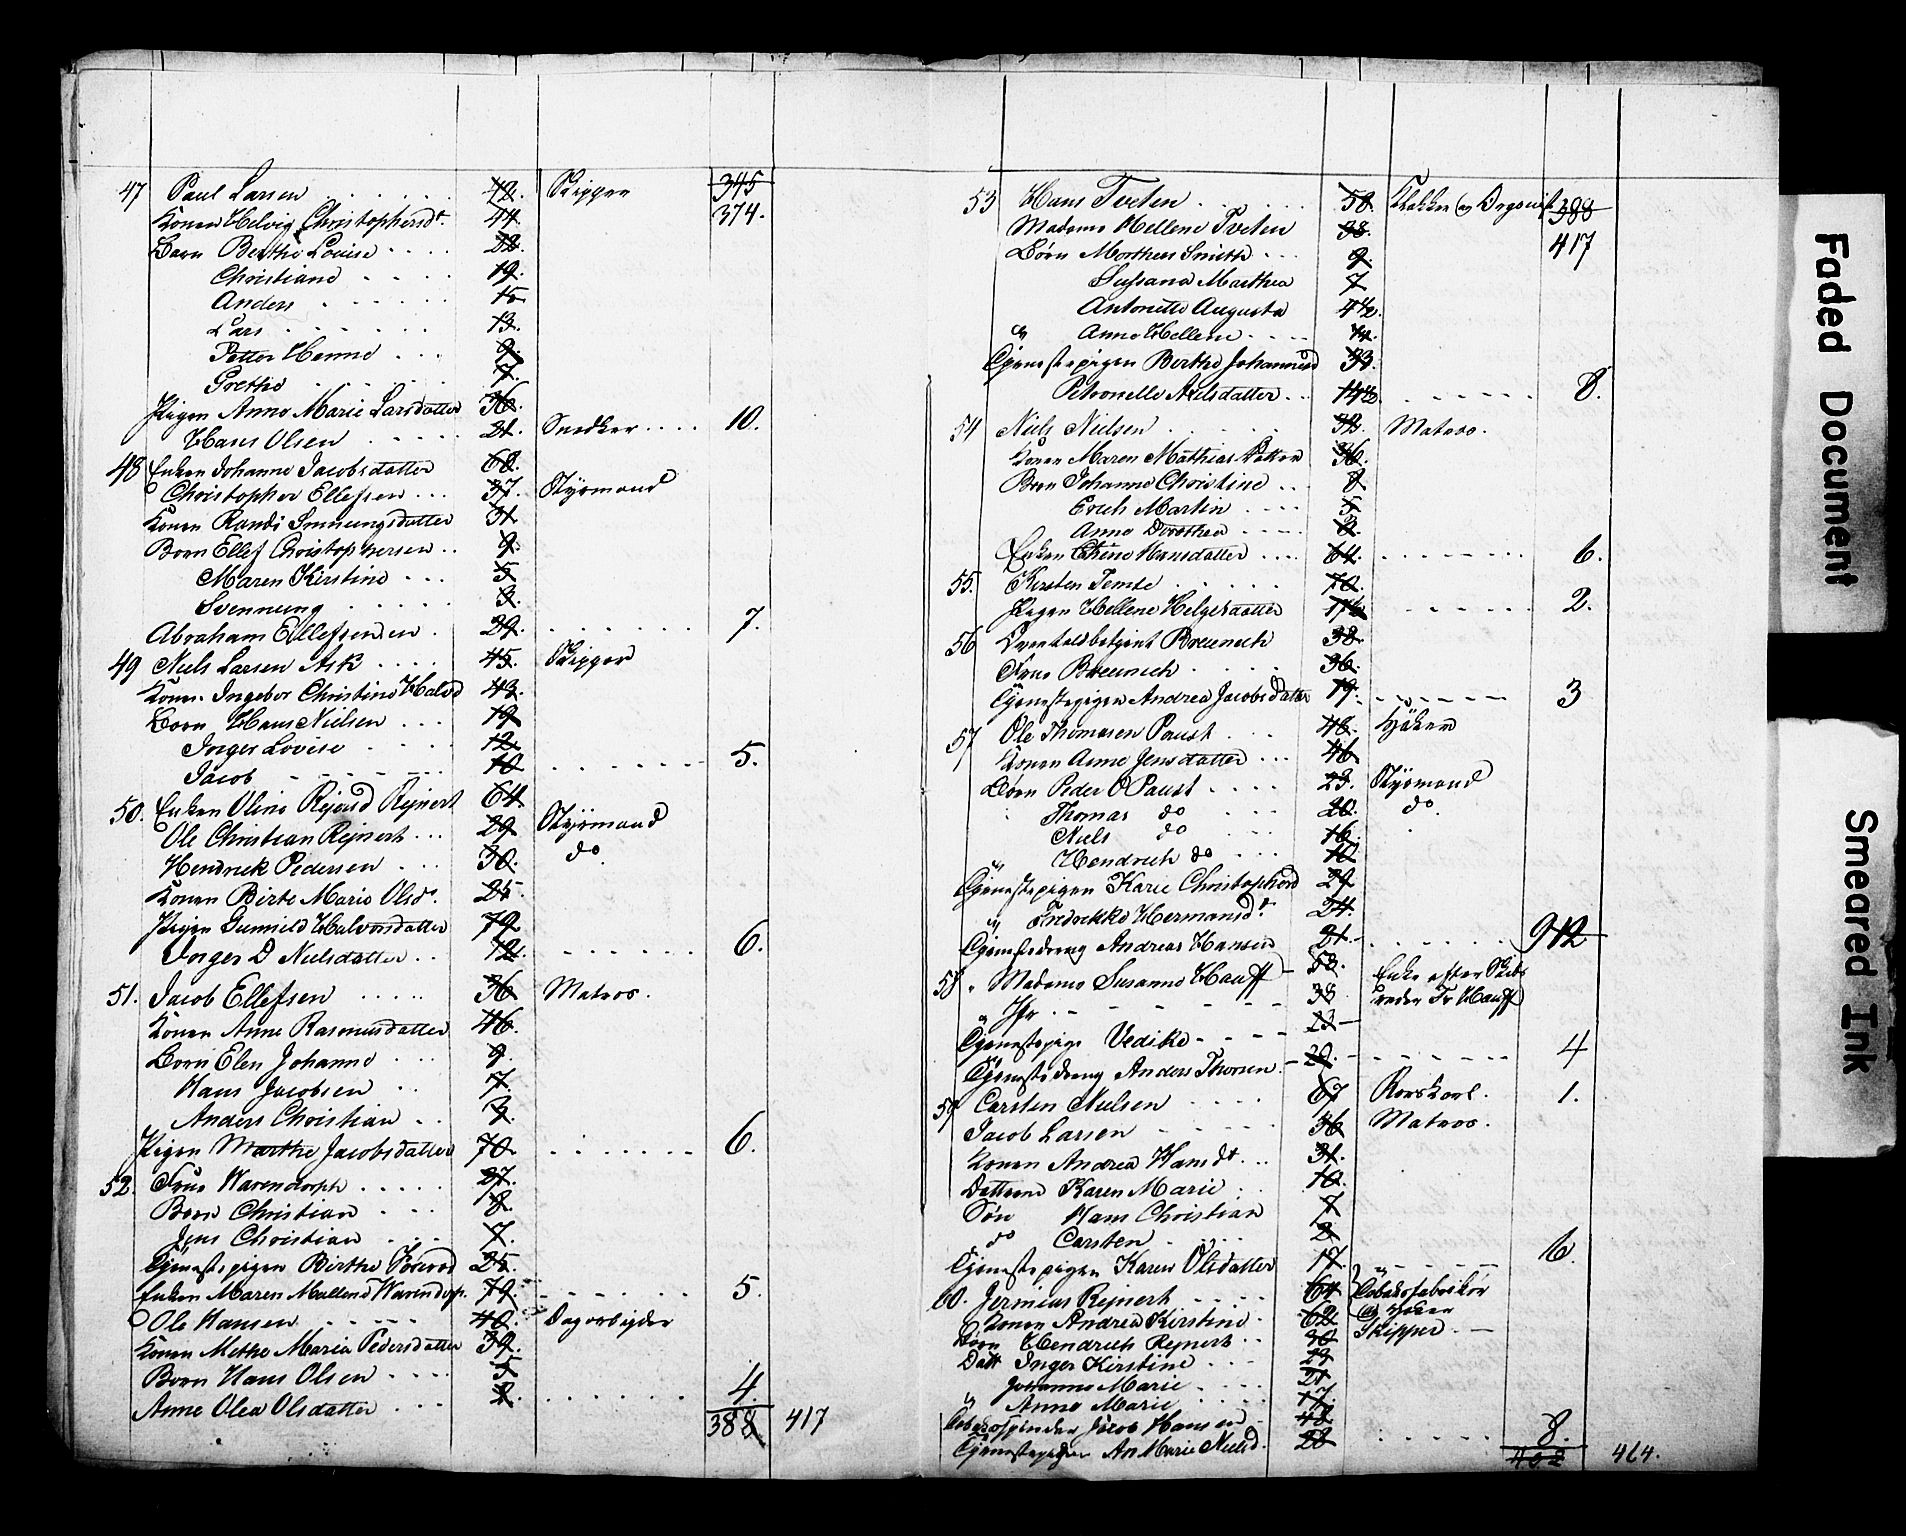 345
47 Paul Larsen . . . . . 42. Skipper
374.
Konen Helvig Christophersdt. 44.
Børn Berthe Lovise . . . . 22.
Christiane . . . . 19.
Anders . . . . . . 15
Lars . . . . . . 13.
Petter Hanne . . . 9.
Grethe . . . . . 7.
Pigen Anne Marie Larsdatter 36.
Hans Olsen . . . . . 21. Snedker . . . . 10.
48 Enken Johanne Jacobsdatter 68.
Christopher Ellefsen . . . 37. Styrmand
Konen Randi Svennungsdatter 31.
Børn Ellef Christophersen . . 9.
Maren Kirstine . . . 5
Svennung . . . . . 3.
Abraham Ellefsen . 29. . . . . . . 7.
49 Niels Larsen Ask . . . . 45. Skipper
Konen Ingebor Christine Halvd 43.
Børn Hans Nielsen . . . 19
Inger Lovise . . . . 12.
Jacob . . . . . . 10 . . . . . . . 5.
50. Enken Oline Rejersd Rejnert 64.
Ole Christian Rejnert . . . 29 Styrmand
Hendrick Pedersen . . . 30. do.
Konen Birte Marie Olsdr. 25.
Pigen Gunnild Halvorsdatter 79.
Inger D Nielsdatter . . 12. . . . . . . 6.
51. Jacob Ellefsen . . . . . 36 Matros.
Konen Anne Rasmusdatter 46.
Børn Elen Johanne . . . 9.
Hans Jacobsen . . 7.
Anders Christian . . 3.
Pigen Marthe Jacobsdatter 70. . . . . . . 6.
52. Frue Warendorph . . . . . 27.
Børn Christian . . . 8.
Jens Christian . . . 7.
Tjenestepigen Birthe 25.
Enken Maren Mallene Warendorp. 79. . . . . . . 5.
Ole Hansen . . . . . 40. Dagarbejder
Konen Methe Maria Pedersdatter 39.
Børn Hans Olsen . . . . 5
Anne Olea Olsdatter . . . 2. . . . . . . 4.
388 417
53 Hans Tveten . . . . . 58. Klokker og Organist 388
Madame Hellene Tveten 38.
417
Børn Morthens Smith . . . 9.
Susana Marthea 7
Antonette Augusta 4½.
" Anne Hellene . . . . ¼.
Tjenestepigen Berthe Johannesd 33.
Petronelle Nielsdatter . . 14½. . . . . . . 8.
54 Niels Nielsen . . . . . . 32. Matros.
Konen Maren Mathias Datter 36.
Børn Johanne Christine . . . 8.
Erich Martin . . . . 5
Anne Dorothea . . . . 2.
Enken Hansdatter . . . . 64. . . . . . . . 6.
55. Kirsten Temte . . . . . 70.
Pigen Hellene Helgesdatter 17½ . . . . . . 2.
56 Breunich 38.
Frue Breunich . . . . . 36.
Tjenestepigen Andrea Jacobsdatter 19. . . . . . . 3
57 Ole Thomasen Paust . . . 48. Høker
Konen Anne Jensdatter . . . 46
Børn Peder O Paust . . . . 23. Styrmand
Thomas do . . . 20. do.
Niels do . . . 16.
" Hendrich do . . . 10.
Tjenestepigen Karie Christophersd 29
" Fredrekke Hermansdt. 24.
Tjenestedreng Andreas Hansen 21. . . . . . . 912
58 " Madame Susanne Hauff – 53. Enke efter Skibs
reder Fr Hauff
" Jfr. . . . . . . 38.
Tjenestepige Vedike . . . . 23 –
Tjenestedreng Anders Thorsen . – 20. . . . . . . 4
59 Carsten Nielsen . . . . 67 Rorskarl. 1.
Jacob Larsen . . . . . 36 Matros.
Konen Andrea Hansdt. . . 31.
Datteren Karen Marie . . 10.
Søn Hans Christian 7
do Carsten . . . . . 2
Tjenestepigen Karen Olsdatter 17. . . . . . 6.
60. Jermias Rejnert . . . . 64 Tobaksfabrikør
og Høker
Konen Andrea Kirstine . 62
Børn Hendrich Rejnert . . 30 Skipper. –
Datt Inger Kirstine . . . 29
Johanne Marie . . . . 21
" Anne Marie . . . . . 17.
Tobaksspinder Jacob Hansen . 48
Tjenestepigen An Marie Nielsd. 28 . . . . . . 8.
464.